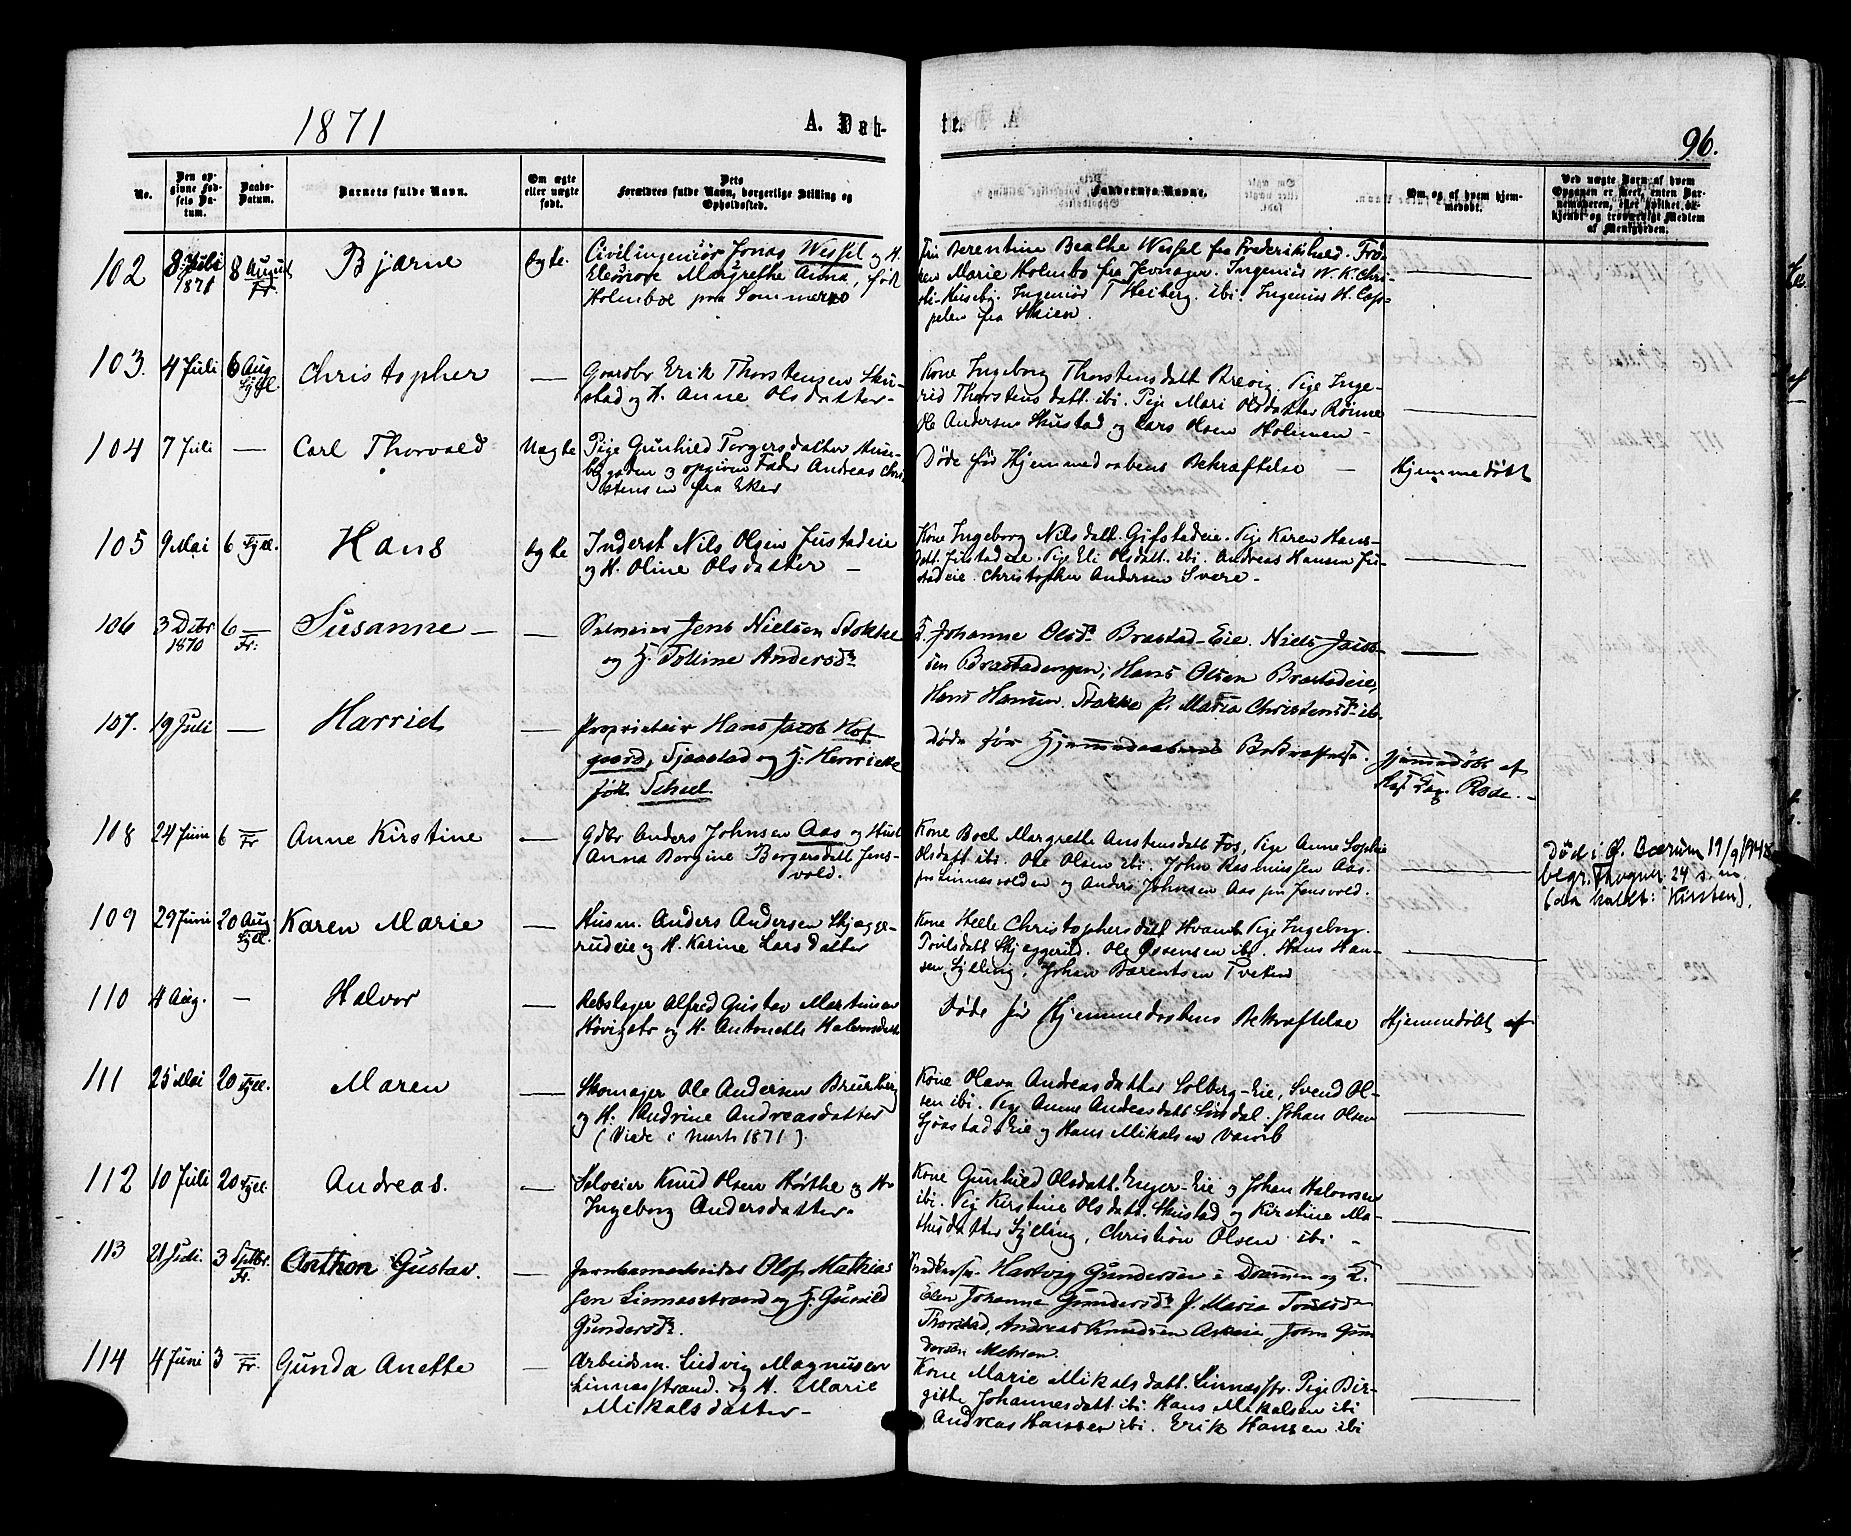 1871
A. Dåb-
te.
96.
No.
Den opgivne Fødsels Datum.
Daabs-Datum.
Barnets fulde Navn.
Om ægte eller uægte født.
Dets Forældres fulde Navn, borgerlige Stilling og Opholdssted.
Faddernes Navne.
Om, og af hvem hjemmedøbt.
102 8 Juli 1871 8 August Fr Bjarne ægte.
Civilingeniør Jonas Wessel og H.
Eleonore Margrethe Anna, født
Holmboe paa Sommerro
Fru Berentine Beathe Wessel fra Frederikshald. Frø-
ken Marie Holmbo fra Jevnager. Ingeniør W. K. Chri-
Huseby. Ingeniør T Heiberg. ibi. Ingeniør H. Cap-
pelen fra Skien.
103. 4 Juli 6 Aug Syll. Christopher —
Gaardbr Erik Thorstensen Sku-
stad og H. Anne Olsdatter-
Kone Ingeborg Thorstensdatt Brevig. Pige Inge-
rid Thorstensdatt. ibi. Pige Mari Olsdatter Rønne
Ole Andersen Skustad og Lars Olsen Holmen -
104 7 Juli — Carl Thorvald Uægte
Pige Gunhild Torgersdatter Huse-
bygaden og opgiven Fader Andreas Chri
stensen fra Eker
Døde før Hjemmedaabens Bekræftelse —
Hjemmedøbt
105 9 Mai 6 Syll. Hans ægte
Inderst Nils Olsen Justadeie
og H. Oline Olsdatter -
Kone Ingeborg Nilsdatt. Gifstadeie. Pige Karen Hans-
datt. Justadeie. Pige Eli Olsdatt. ibi. Andreas Hansen Ju-
stadeie. Christopher Andersen Svere-
106 3 Dcbr 1870 6 Fr: Susanne — —
Selveier Jens Nielsen Stokke
og H. Tolline Andersdr
K. Johanne Olsdr Brastad-Eie. Niels
sen Brastadengen, Hans Olsen Brastadeie,
Hans Hansen Stokke P. Maria Christensdr ib
107. 19 Juli — Harriet —
Proprietair Hans Jacob Hof-
gaard, Sjaastad og H. Henriette
født Scheel
Døde før Hjemmedaabens Bekræftelse.
Hjemmedøbt af
Rode. -
108 24 Juni 6 Fr Anne Kirstine —
Gdbr Anders Johnsen Aas og Hust
Anna Borgine Borgersdatt Jens-
vold.
Kone Boel Margrethe Anstensdatt Fos, Pige Anne Sophie
Olsdatt ibi. Ole Olsen ibi. John Rasmussen Aas
Linnesvolden og Anders Johnsen Aas Jensvold.
Død i Ø. Bærum 19/9 1948
begr. Haugner 24 s. m.
(da kaldt: Kirsten).
109 29 Juni 20 Aug Syll. Karen Marie —
Husm. Anders Andersen Skjægge-
rudeie og H. Karine Larsdatter
Kone Helle Christophersdatt Hvamb Pige Ingeborg
Povlsdatt Skjæggerud. Ole Evensen ibi. Hans Han-
sen Sylling, Johan Barentsen Tveten
110 4 Aug. — Halvor —
Rebslager Alfred Gustav Martinsen
Høvigsbr og H. Antonette Halvorsdatt
Døde før Hjemmedaabens Bekræftelse
Hjemmedøbt af
111 25 Mai 20 Syll. Maren —
Skomager Ole Andersen Brurberg
og H. Andrine Andreasdatter
(Viede i Marts 1871).
Kone Olava Andreasdatter Solberg-Eie, Svend Ol-
sen ibi. Pige Anne Andreasdatt Lindal. Johan Olsen
Sjøstad Eie og Hans Mikalsen
112 10 Juli 20 Syll. Andreas. —
Selveier Knud Olsen Høithe og H.
Ingeborg Andersdatter.
Kone Gunhild Olsdatt. Enger-Eie og Johan Halvorsen
ibi. Pige Kirstine Olsdatt. Skustad og Kirstine Ma-
thisdatter Sylling, Christian Olsen ibi -
113 21 Juli. 3 Septbr. Fr. Anthon Gustav. —
Jernbanearbeider Olof Mathias
sen Linnesstrand og H. Gunild
Gundersdr.
Hartvig Gundersen i Drammen og K.
Elen Johanne Gundersdr P. Maria
Thorstad, Andreas Knudsen Askeie, John Gun
dersen Mehren.
114 4 Juni 3 Fr. Gunda Anette —
Arbeidsm. Ludvig Magnusen
Linnesstrand. og H. Marie
Mikalsdatter-
Kone Marie Mikalsdatt. Linnesstr. Pige Bir-
gitte Johannesdatt ibi. Hans Mikalsen ibi
Andreas Hansen ibi. Erik Hansen ibi